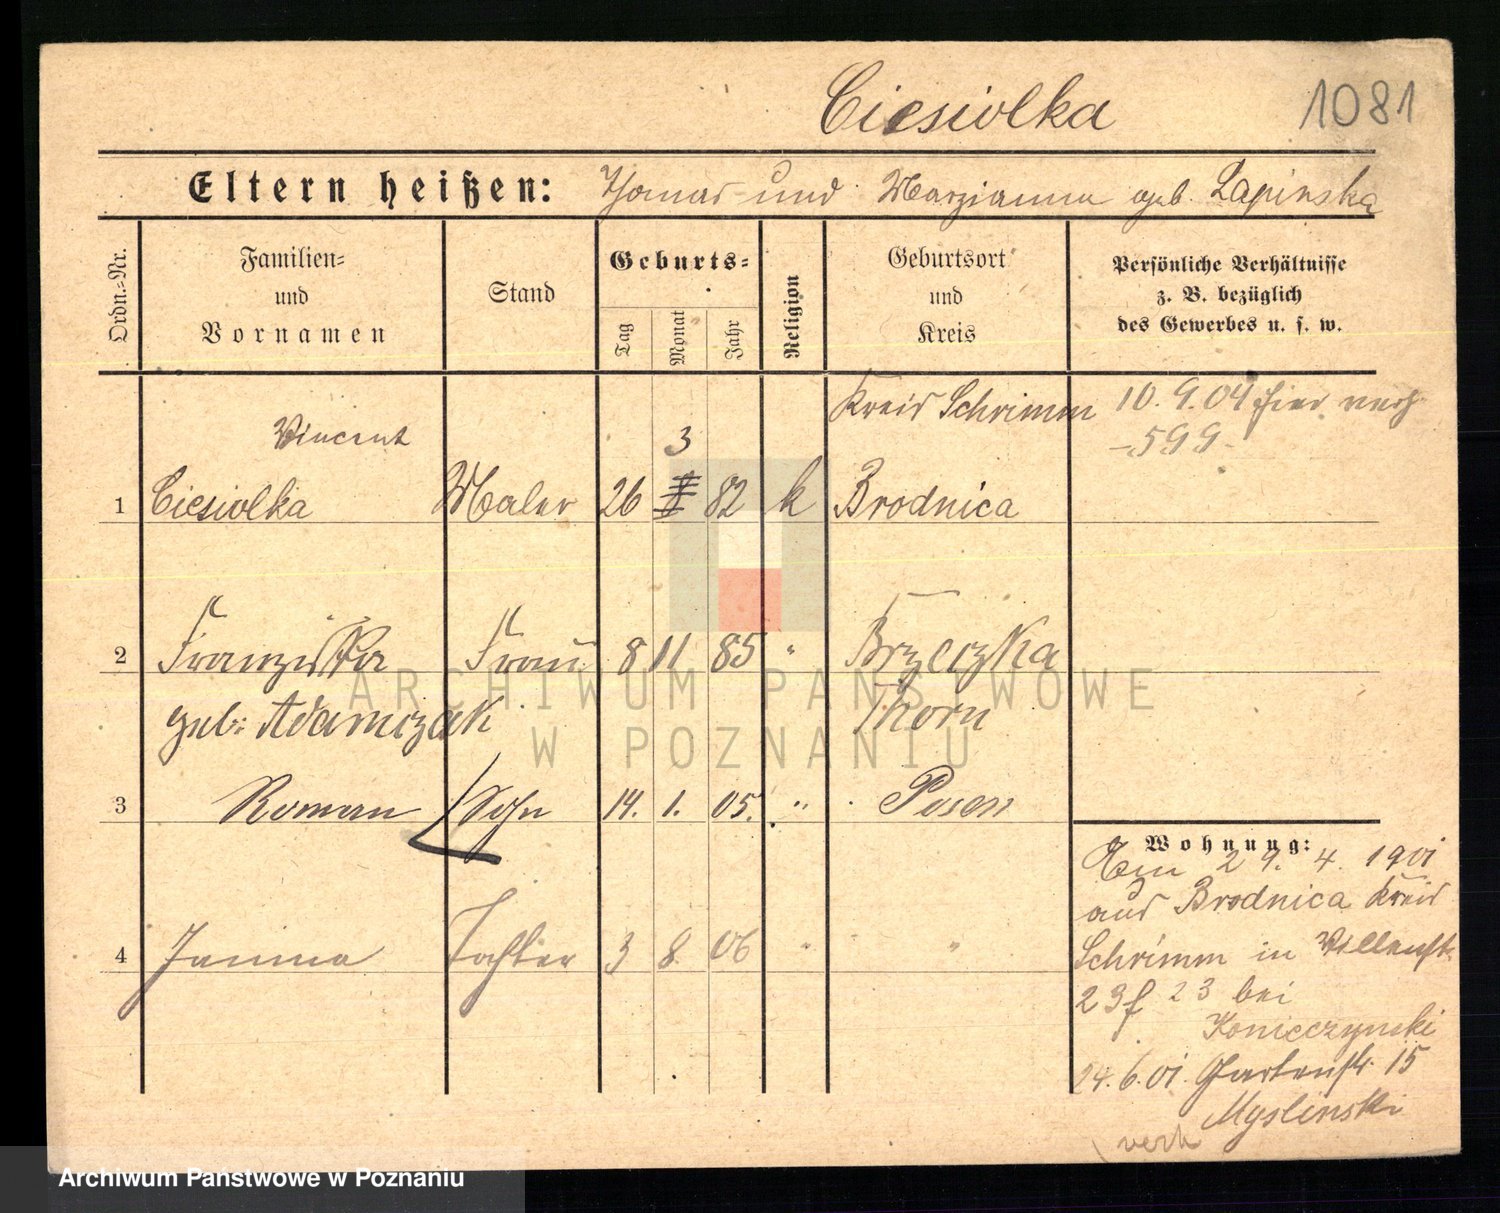 Ciesiolka 1081
Eltern heißen: Thomas und Marzianna geb. Lapinska
Ordn.-Nr.
Familien-
und
Vornamen
Stand
Geburts-
Tag
Monat
Jahr
Religion
Geburtsort
und
Kreis
Persönliche Verhältnisse
z. B. bezüglich
des Gewerbes u. s. w.
Kreis Schrimm 10. 9. 04 hier verh
Vincent 3 -599-
1 Ciesiolka Maler 26 82 k Brodnica
2 Franziska Frau 8 11 85 " Brzeczka
geb. Adamczak Thorn
3 Roman Sohn 14. 1. 05. " Posen
4 Janina Tochter 3 8 06 " "
Wohnung:
Am 29. 4. 1901
aus Brodnica Kreis
Schrimm in
23 bei
Konieczynski
24. 6. 01. Gartenstr. 15
Myslinski
verh
ARCHIWUM PAŃSTWOWE
W POZNANIU
Archiwum Państwowe w Poznaniu